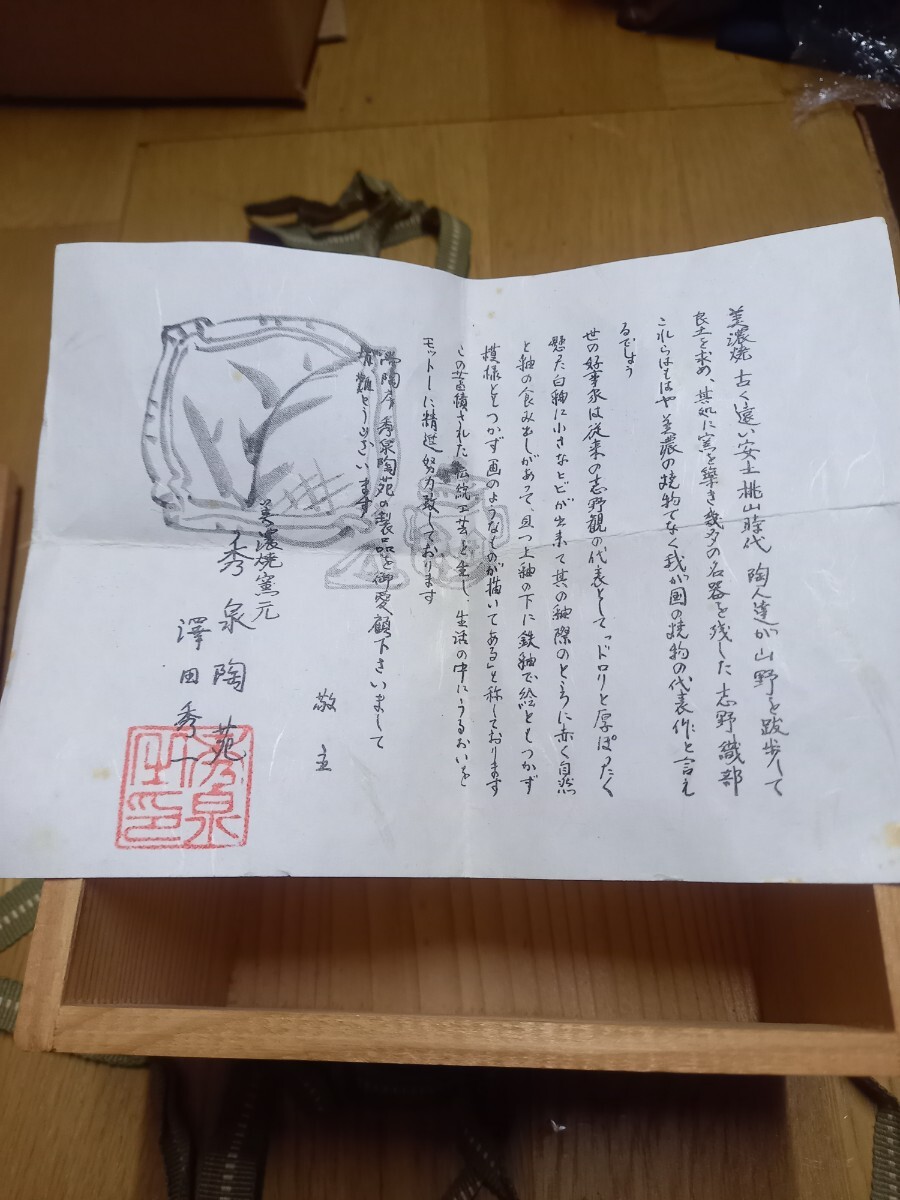 美濃焼 古く遠い安土桃山時代 陶人達が山野を跋歩して
良土を求め、其処に窯を築き幾多の名器を残した 志野織部
これらはもはや美濃の焼物でなく我が国の焼物の代表作と言え
るでしょう
世の好事家は従来の志野観の代表として"ドロリと厚ぽったく
懸た白釉に小さなトビが出来て其の釉際のところに赤く自然
と釉の食み出しがあって、且つ上釉の下に鉄釉で絵ともつかず
模様ともつかず画のようなものが描いてある」と称しております
この蓄積された伝統工芸を生し、生活の中にうるおいを
モットーに精進努力致しております
当陶房 秀泉陶苑の製品を御愛顧下さいまして
有難とうございます
敬 主
美濃焼窯元
秀泉陶苑
澤田秀一
秀泉